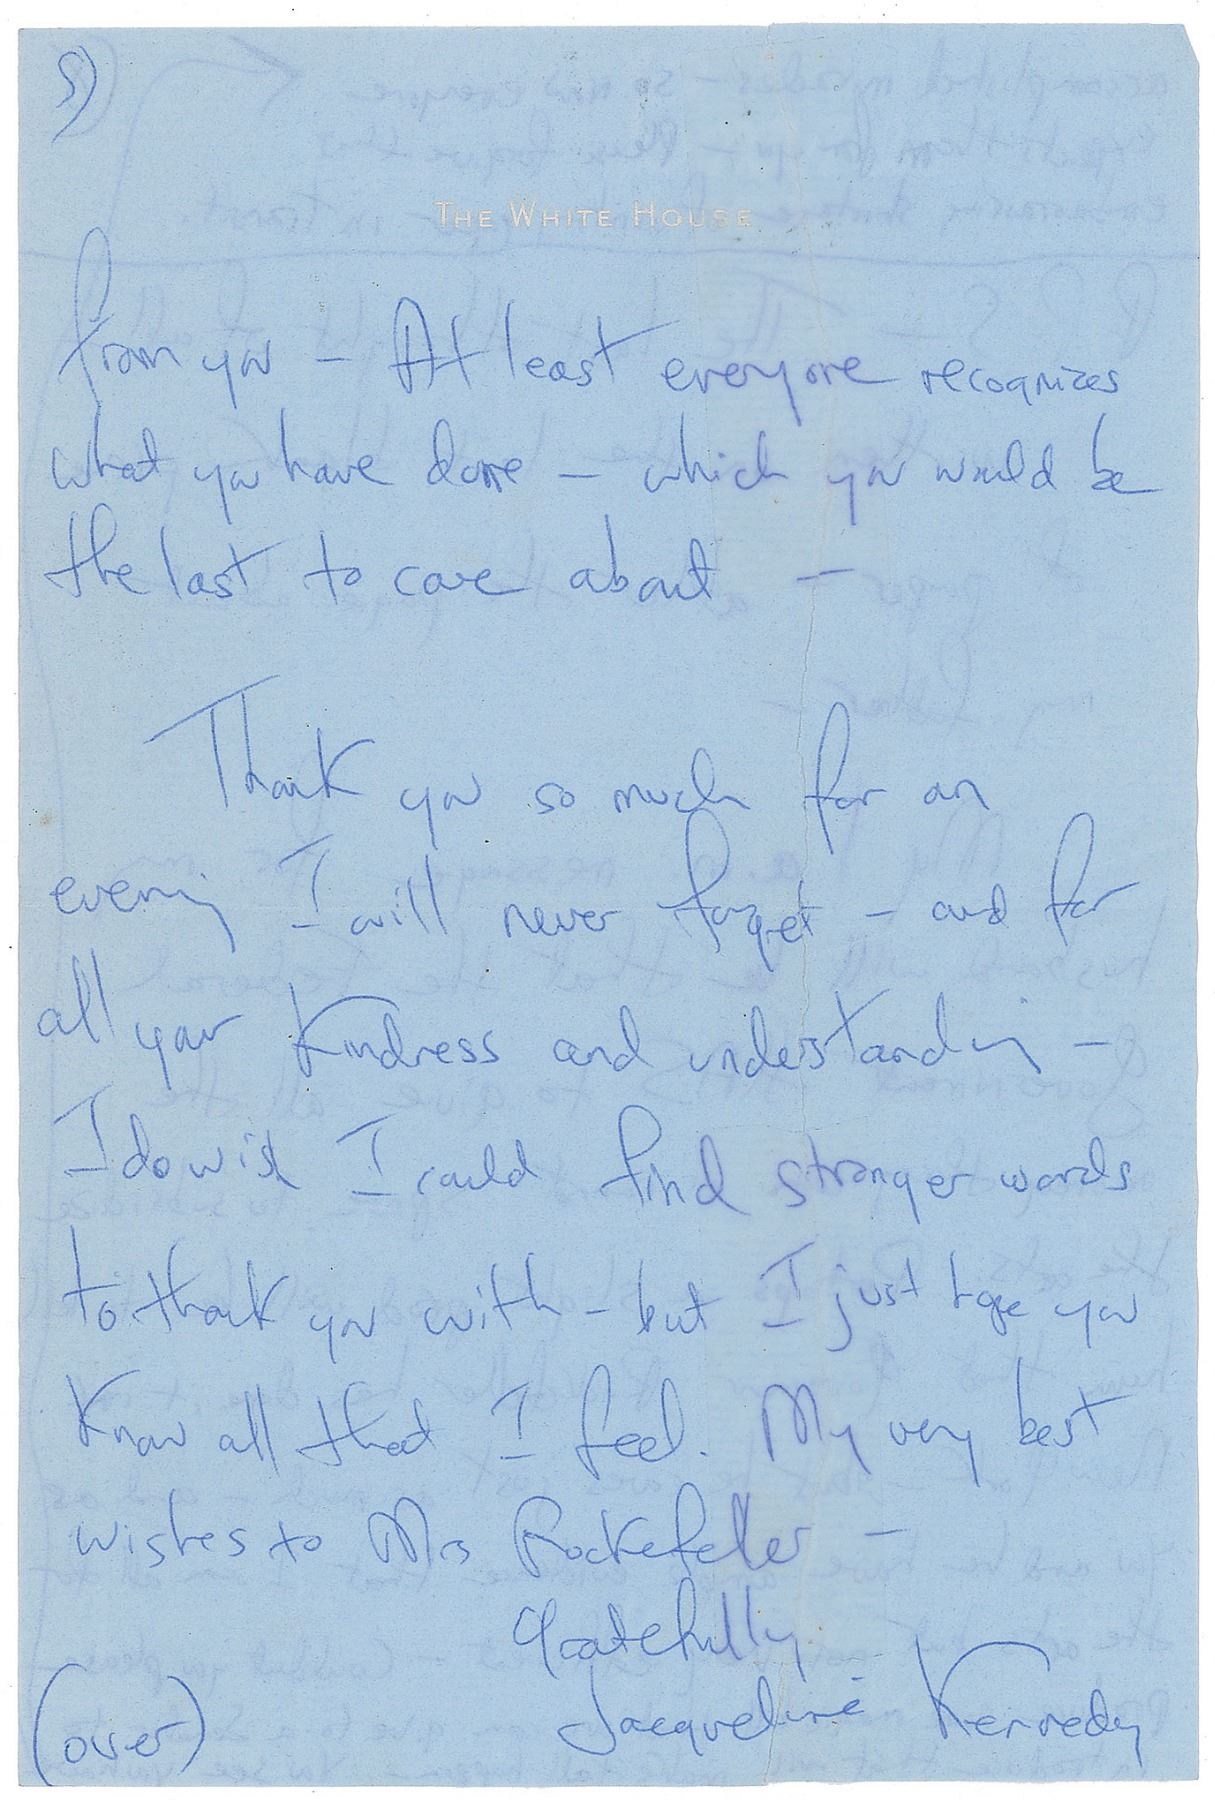 5)
THE WHITE HOUSE
from you – At least everyone recognizes
what you have done – which you would be
the last to care about –
Thank you so much for an
evening I will never forget – and for
all your kindness and understanding –
I do wish I could find stronger words
to thank you with – but I just hope you
know all that I feel. My very best
wishes to Mrs Rockefeller –
Gratefully
Jacqueline Kennedy
(over)